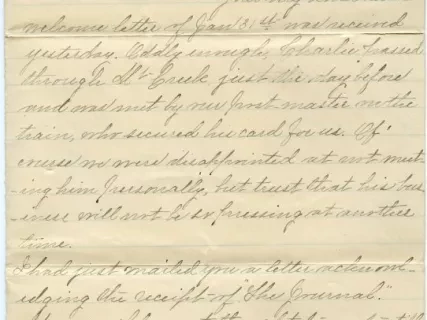 welcome letter of Jan 21st was received
yesterday. Oddly enough, Charlie passed
through St. Creek just the day before
and was met by our post-master on the
train, who secured his card for us. Of
course we were disappointed at not meet-
-ing him personally, but trust that his bus-
-iness will not be so pressing at another
time.
I had just mailed you a letter acknowl-
edging the receipt of "the Journal."